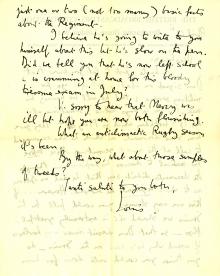 just one or two (not too many) basic facts
about the Regiment.
I believe he's going to write to you
himself about this but he's slow on the pen.
Did we tell you that he's now left school
& is cramming at home for his bloody
exam in July?
V. sorry to hear that Nancy was
ill but hope you are now both flourishing.
What an anticlimactic Rugby season
it's been.
By the way, what about those samples
of tweeds?
salute to you both,